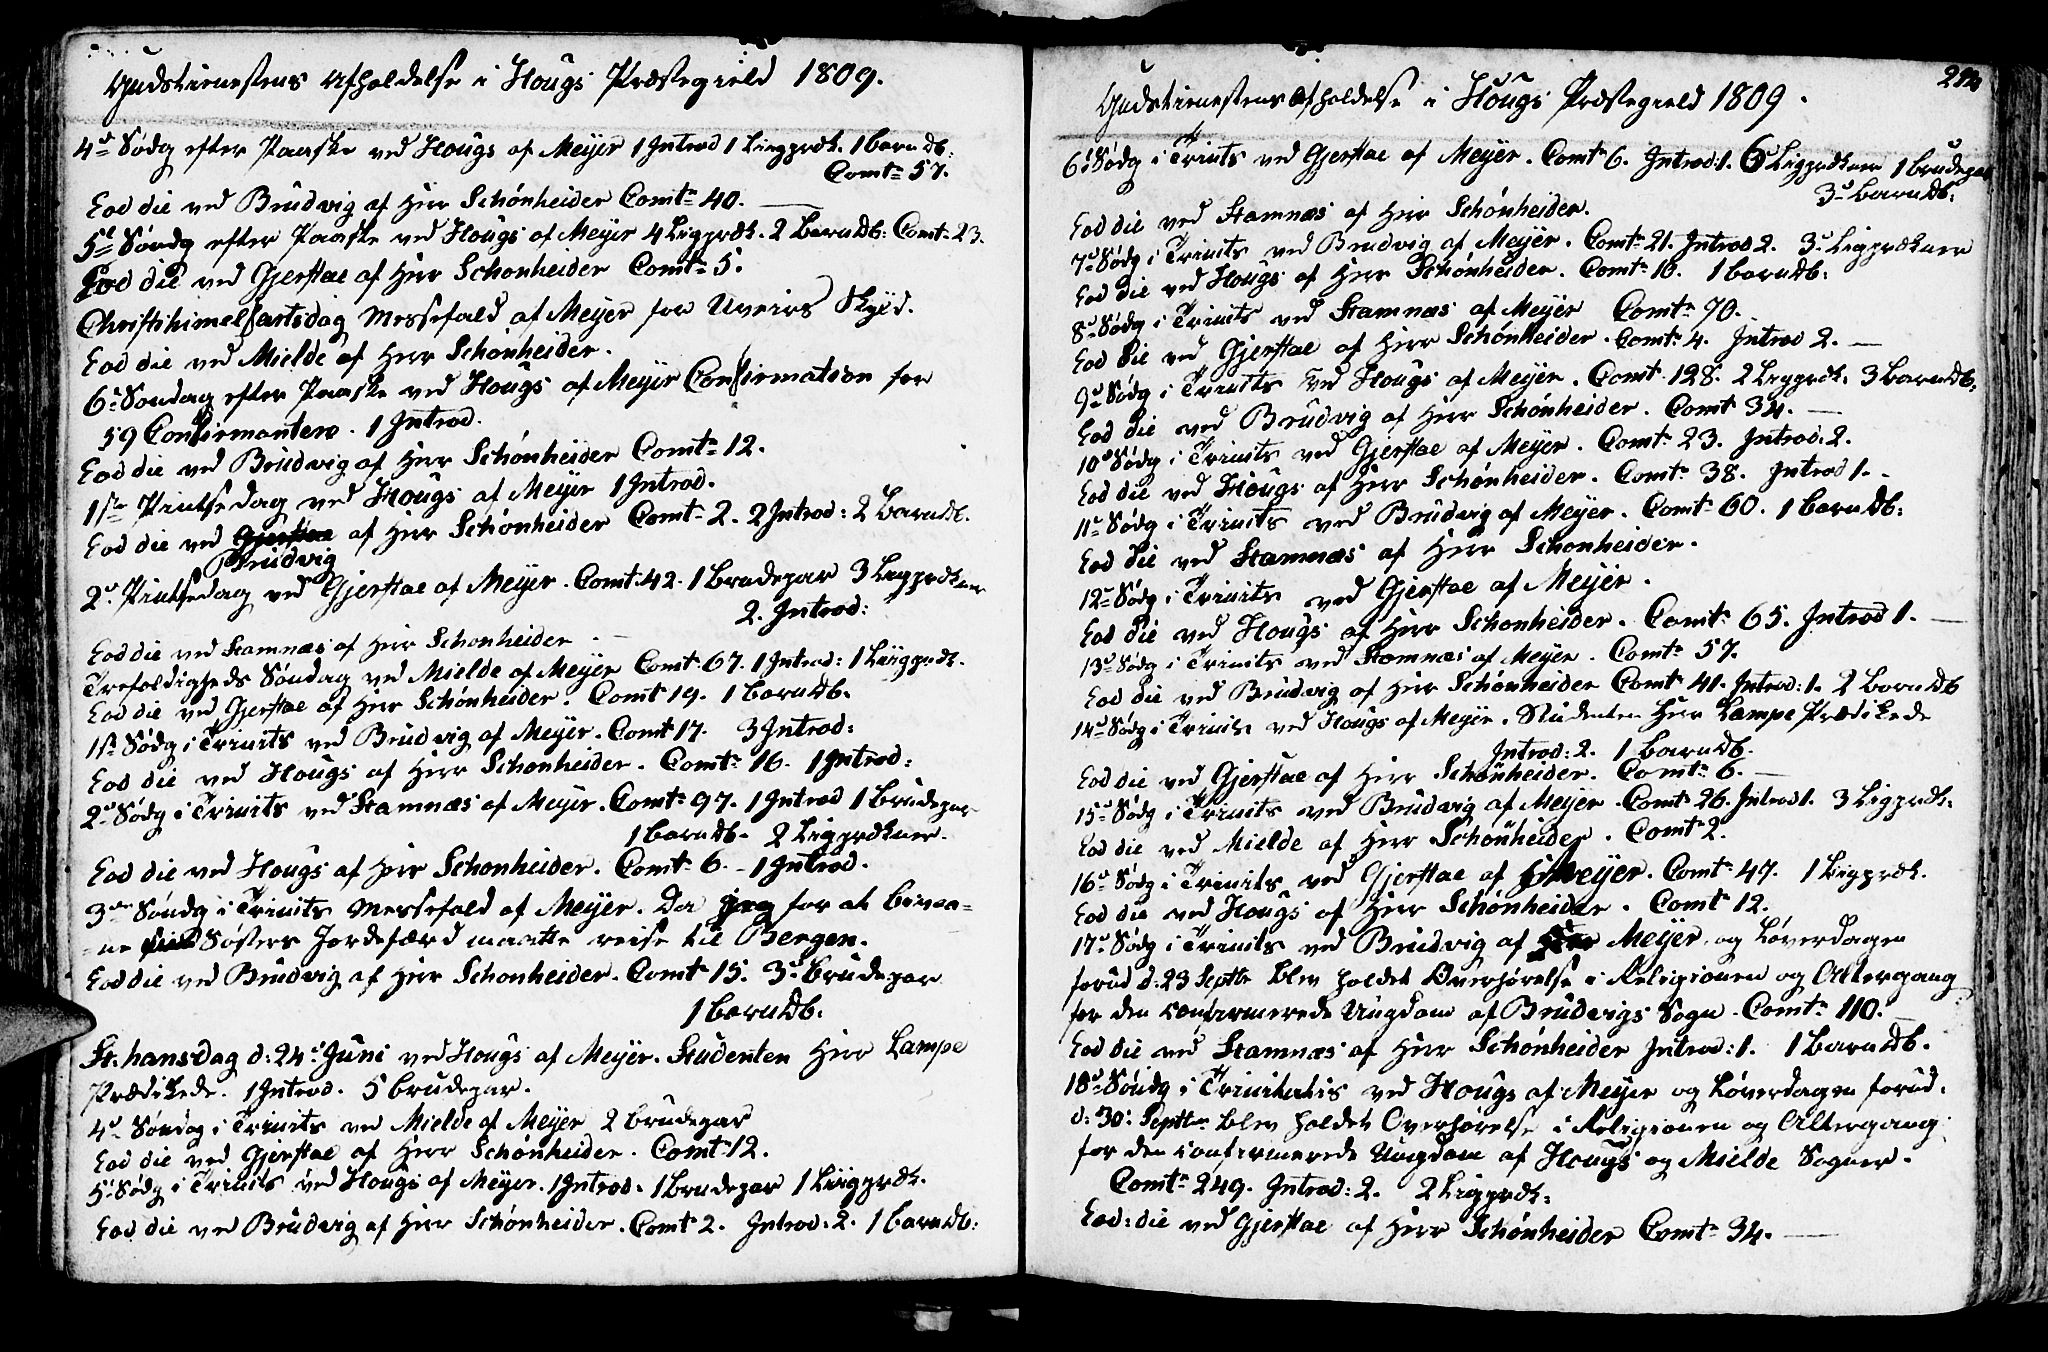 Gudstienestens Afholdelse i Hougs Præstegield 1809.
4de Sødg efter Paaske ved Hougs af Meyer 1 Introd 1 Liigpræk. 1 barndb:
Comt: 57.
Eod die ved Brudvig af Herr Schønheider Comt: 40.
5te Søndg efter Paaske ved Hougs af Meyer 4 Ligpræk. 2 Barndb: Comt: 23.
Eod die ved Gjerstae af Herr Schønheider Comt: 5.
Christihimelfartsdag Messefald af Meyer for Uveirs Skyld.
Eod die ved Mielde af Herr Schønheider.
6te Søndag efter Paaske ved Hougs af Meyer Confirmation for
59 Confirmantere. 1 Introd.
Eod die ved Brudvig af Herr Schønheider Comt: 12.
1ste Pintsedag ved Hougs af Meyer 1 Introd.
Eod die ved Gjerstae af Herr Schønheider Comt: 2. 2 Introd: 2 Barndb.
Brudvig
2de Pintsedag ved Gjerstae af Meyer. Comt: 42. 1 Brudepar 3 Ligprækner
2. Introd:
Eod die ved Stamnæs af Herr Schønheider
Trefoldigheds Søndag ved Mielde af Meyer Comt: 67. 1 Introd: 1 Liigpræk.
Eod die ved Gjerstae af Herr Schønheider. Comt 19. 1 barndb.
1ste Sødg i Trinits ved Brudvig af Meyer. Comt 17. 3 Introd:
Eod die ved Hougs af Herr Schønheider. Comt: 16. 1 Introd:
2de Sødg i Trinits ved Stamnæs af Meyer. Comt: 97. 1 Introd 1 Brudepar
1 barndb. 2 Ligprækner.
Eod die ved Hougs af Herr Schønheider. Comt: 6. 1 Introd.
3die Søndg i Trinits Messefald af Meyer. Da jeg for at bivaa-
ne Søsters Jordefærd maatte reise til Bergen.
Eod die ved Brudvig af Herr Schønheider. Comt 15. 3 Brudepar
1 barndb.
St. hansdag d: 24de Juni ved Hougs af Meyer. Studenten Herr Lampe
Prædikede. 1 Introd. 5 brudepar.
4de Søndag i Trinits ved Mielde af Meyer 2 brudepar
Eod die ved Gjerstae af Herr Schønheider. Comt: 12.
5te Sødg i Trinits ved Hougs af Meyer. 1 Introd. 1 Brudepar 1 Liigpræk.
Eod die ved Brudvig af Herr Schønheider. Comt 2. Introd: 2. 1 barndb:
Gudstienestens Afholdelse i Hougs Præstegield 1809.
6te Sødg i Trinits ved Gjerstae af Meyer. Comt 6. Introd: 1. 6 Ligprækner 1 brudepar
3 barndb:
Eod die ved Stamnæs af Herr Schønheider.
7de Sødg i Trinits ved Brudvig af Meyer. Comt: 21. Introd 2. 3 Ligprækner
Eod die ved Hougs af Herr Schønheider. Comt: 16. 1 barndb:
8de Sødg i Trinits ved Stamnæs af Meyer Comt: 70.
Eod die ved Gjerstae af Herr Schønheider. Comt: 4. Introd 2.
9de Sødg i Trinits ved Hougs af Meyer. Comt 128. 2 Ligpræk. 3 barndb.
Eod die ved Brudvig af Herr Schønheider. Comt 34.
10de Sødg i Trinits ved Gjerstae af Meyer. Comt: 23. Introd. 2.
Eod die ved Hougs af Herr Schønheider. Comt: 38. Introd 1.
11te Sødg i Trinits ved Brudvig af Meyer. Comt: 60. 1 barndb:
Eod die ved Stamnæs af Herr Schønheider.
12te Sødg i Trinits ved Gjerstae af Meyer.
Eod die ved Hougs af Herr Schønheider. Comt: 65. Introd 1.
13de Sødg i Trinits ved Stamnæs af Meyer. Comt: 57.
Eod die ved Brudvig af Herr Schønheider Comt 41. Introd: 1. 2 barndb
14de Sødg i Trinits ved Hougs af Meyer. Studenten Herr Lampe Prædikede
Introd: 2. 1 barndb.
Eod die ved Gjerstae af Herr Schønheider. Comt: 6.
15de Sødg i Trinits ved Brudvig af Meyer. Comt 26. Introd 1. 3 Ligpræk:
Eod die ved Mielde af Herr Schønheider. Comt 2.
16de Sødg i Trinits ved Gjerstae af Meyer. Comt: 47. 1 Ligpræk.
Eod die ved Hougs af Herr Schønheider. Comt 12.
17de Sødg i Trinits ved Brudvig af Meyer og Løverdagen
forud d: 23 Septbr blev holdet Overhørelse i Religionen og Altergang
for den confirmerede Ungdom af Brudvigs Sogn. Comt: 110.
Eod die ved Stamnæs af Herr Schønheider Introd: 1. 1 Barndb.
18de Søndg i Trinitatis ved Hougs af Meyer og Løverdagen forud.
d: 30: Septbr blev holdet Overhørelse i Religionen og Altergang
for den confirmerede Ungdom af Hougs og Mielde Sogner.
Comt: 249. Introd: 2. 2 Ligpræk:
Eod: die ved Gjerstae af Herr Schønheider Comt: 34.